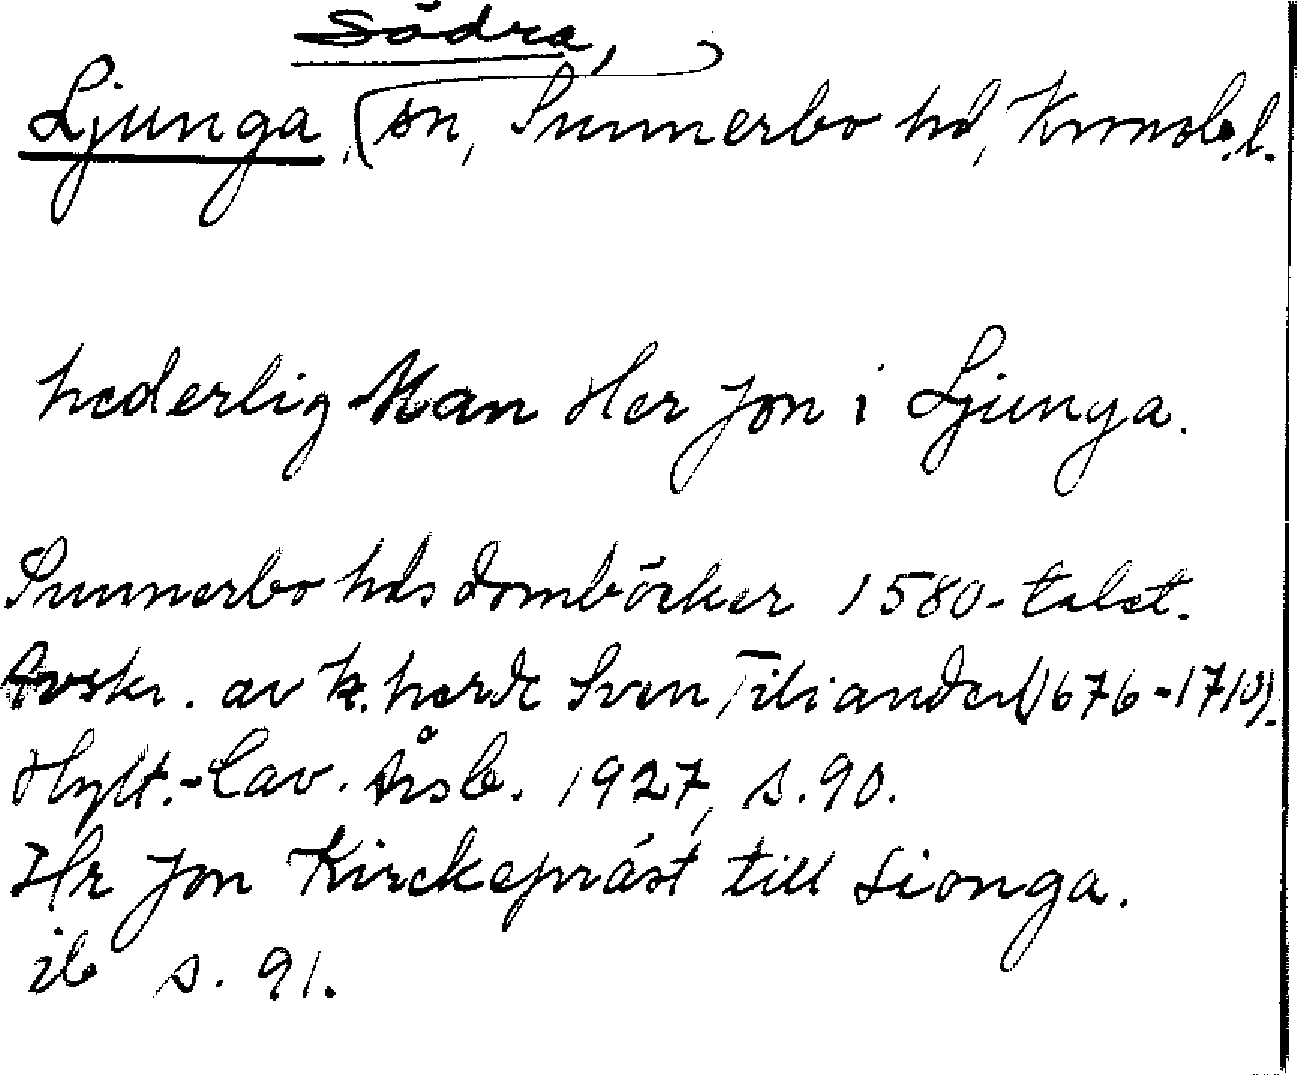 Södra,
Ljunga, sn, Sunnerbo hd, Kronob. l.
hederlig Man Her Jon i Ljunga.
Sunnerbo hds domböcker 1580-talet.
Avskr. av k. herde Sven Tiliander (1676-1710).
Hylt.-Cav. Årsb. 1927, s. 90.
Hr Jon Kirckepräst till Lionga.
ib s. 91.